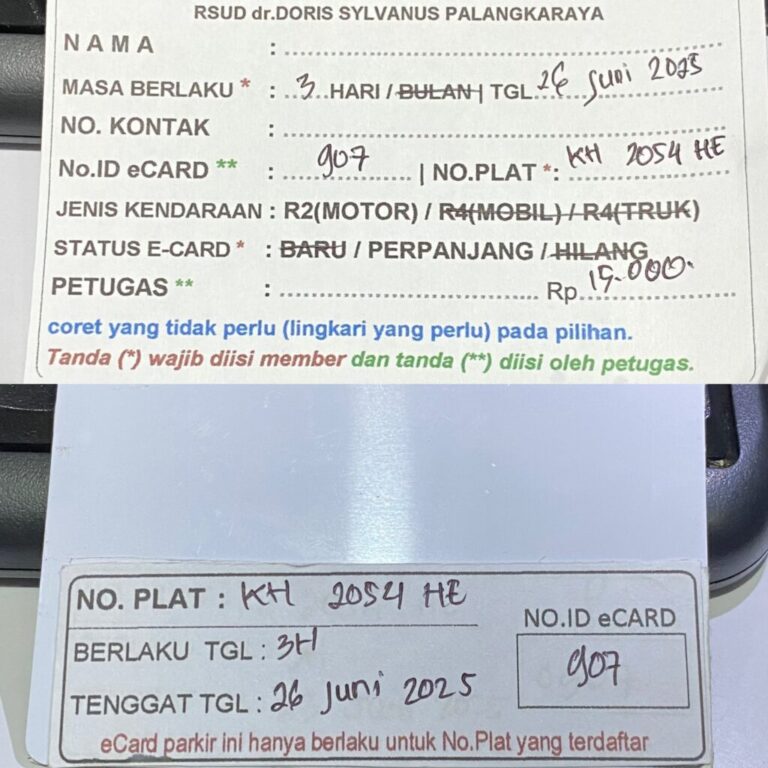 RSUD dr.DORIS SYLVANUS PALANGKARAYA
NAMA : ..........
MASA BERLAKU * : ..3..HARI / BULAN | TGL 26 Juni 2025
NO. KONTAK : ..........
No.ID eCARD ** : 907 | NO.PLAT *: KH 2054 HE
JENIS KENDARAAN : R2(MOTOR) / R4(MOBIL) / R4(TRUK)
STATUS E-CARD * : BARU / PERPANJANG / HILANG
PETUGAS ** : .......... Rp 15.000.
coret yang tidak perlu (lingkari yang perlu) pada pilihan.
Tanda (*) wajib diisi member dan tanda (**) diisi oleh petugas.
NO. PLAT : KH 2054 HE
NO.ID eCARD
BERLAKU TGL : 3H
907
TENGGAT TGL : 26 Juni 2025
eCard parkir ini hanya berlaku untuk No.Plat yang terdaftar